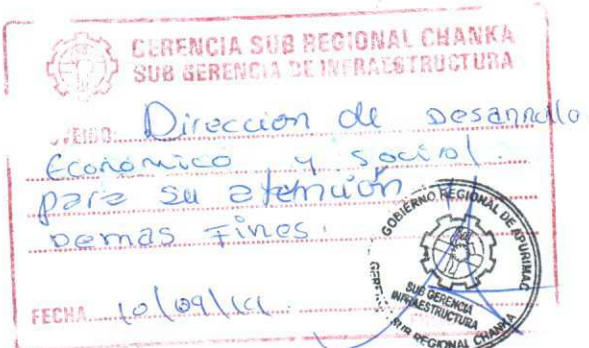 GERENCIA SUB REGIONAL CHANKA
SUB GERENCIA DE INFRAESTRUCTURA
Dirección de Desarrollo
Económico y social
para su atención
Demas Fines.
FECHA
GOBIERNO REGIONAL DE APURIMAC
SUB GERENCIA
INFRAESTRUCTURA
SUB REGIONAL CHANKA